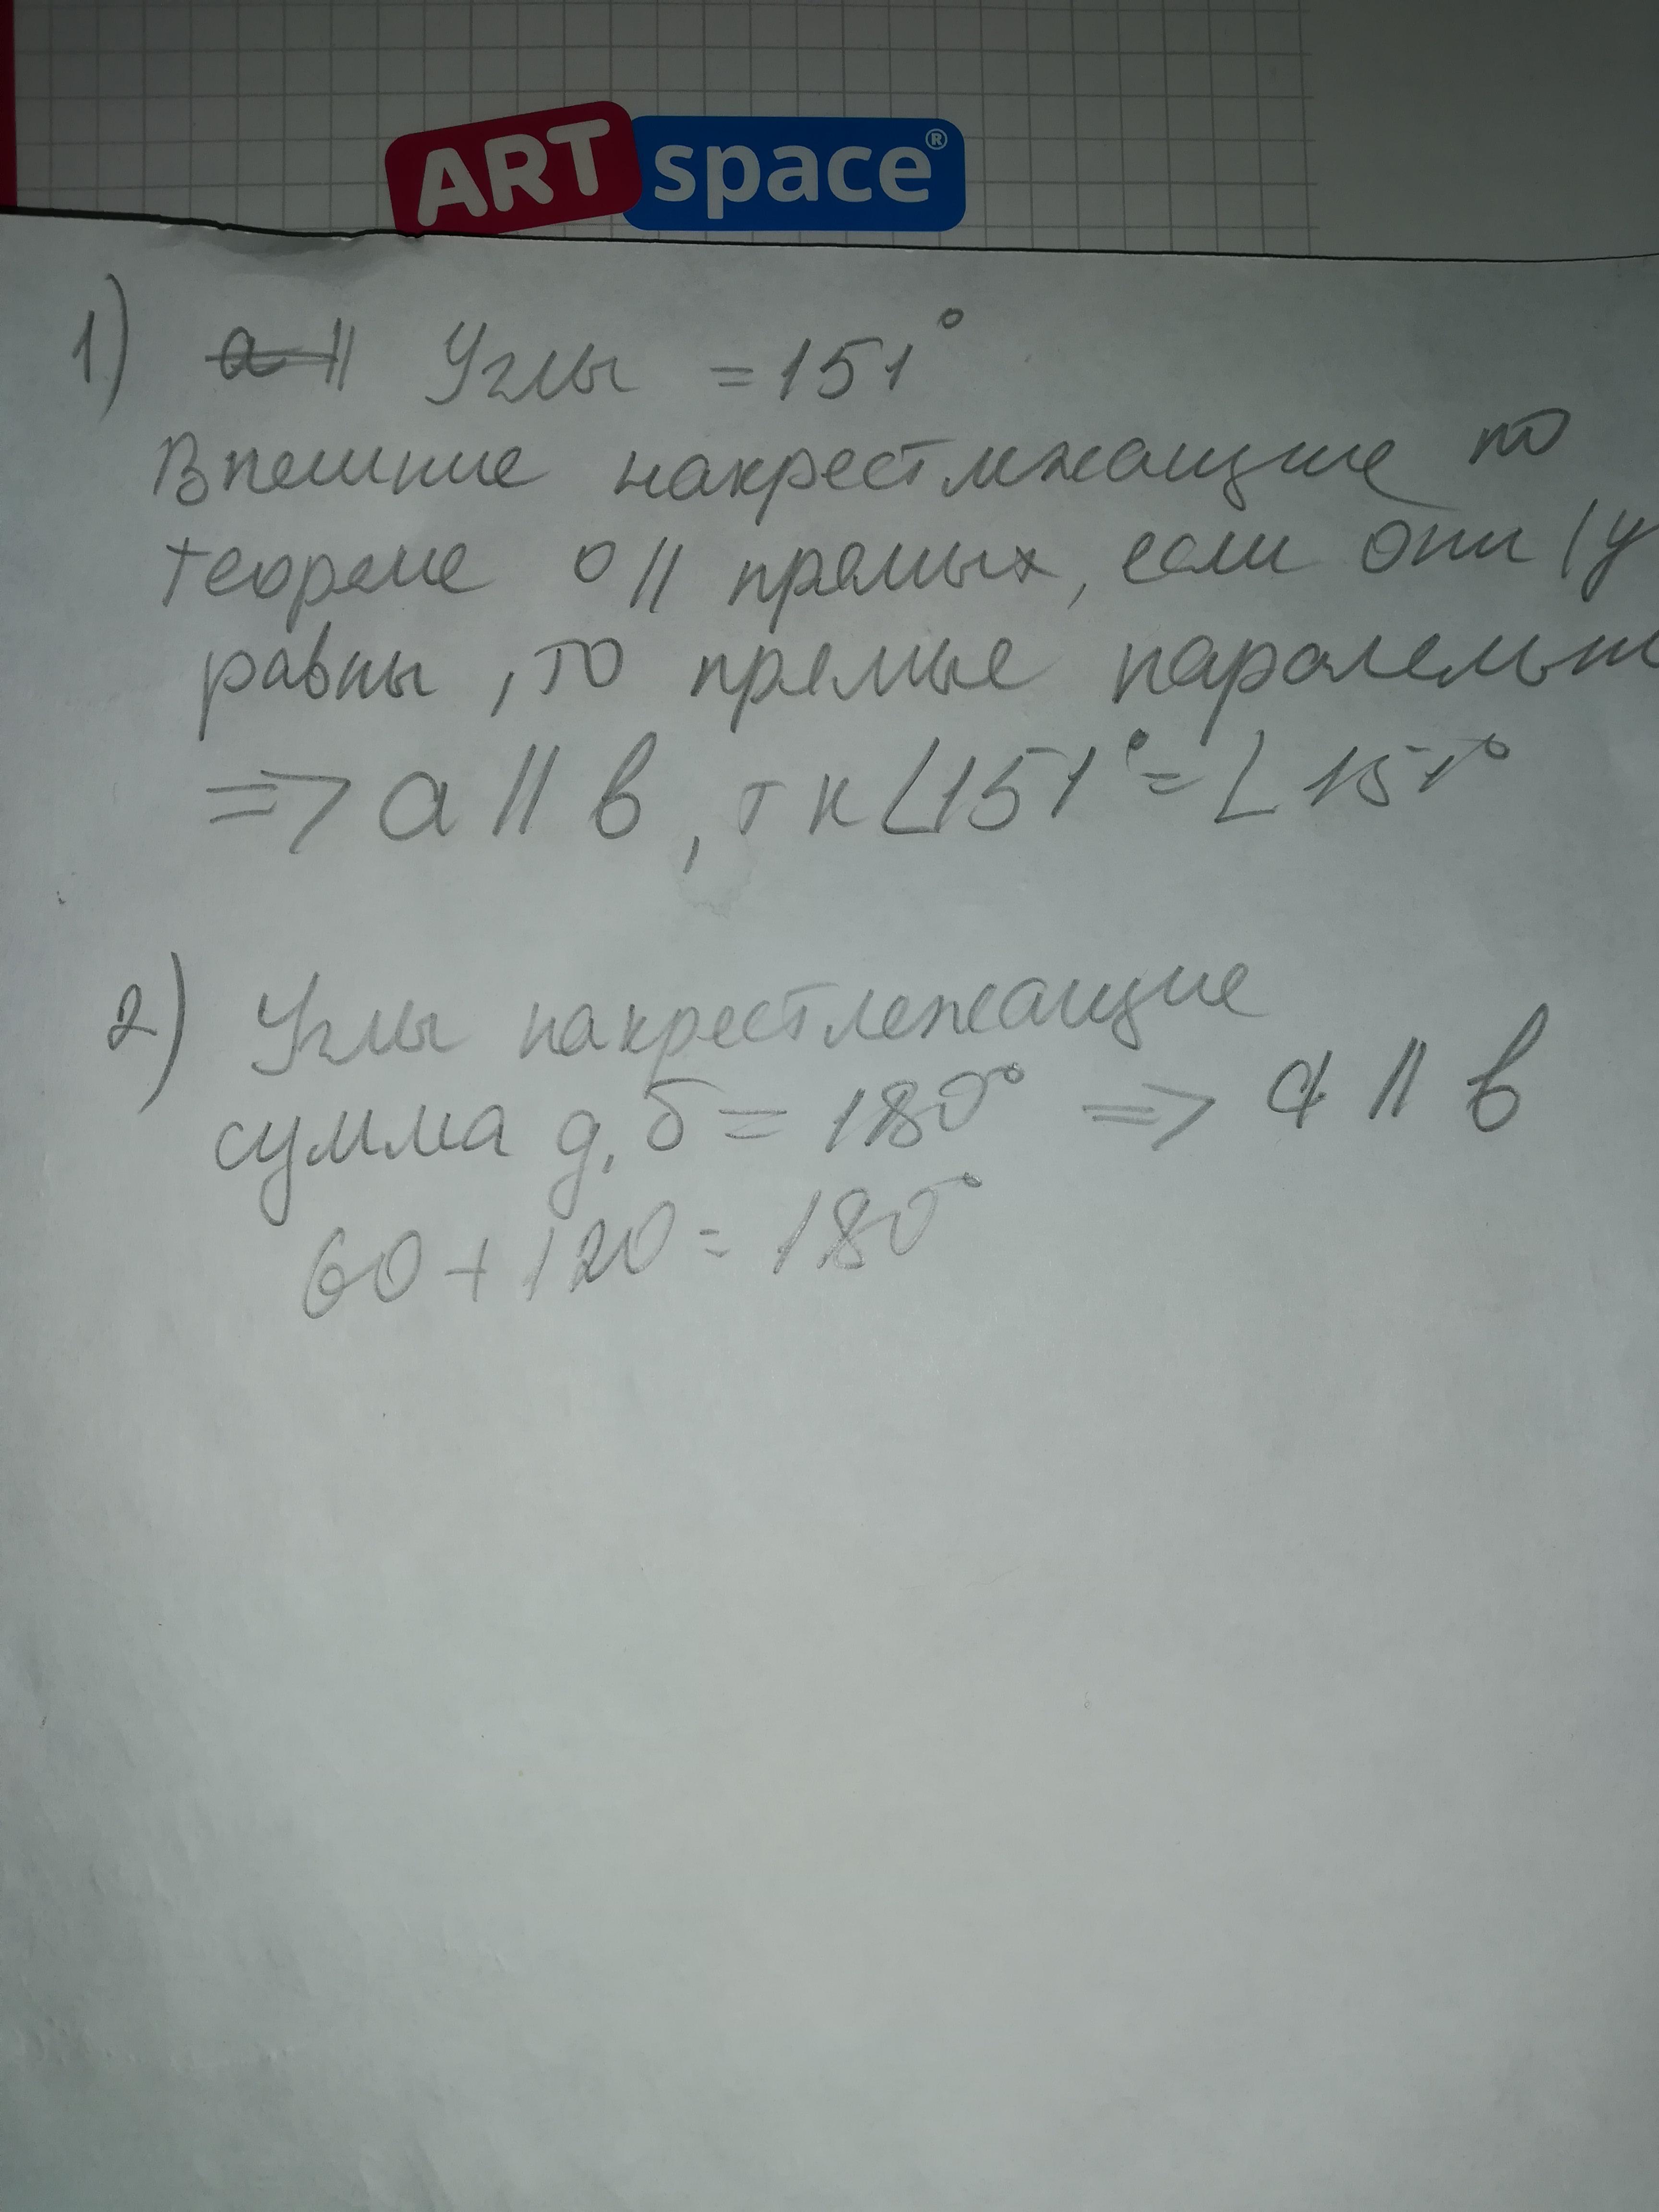 ART space®
1) a || Углы = 151°
Внешние накрестлежащие по
теореме о || прямых, если они (у
равны, то прямые паралельн
=> a || в, тк ∠151° = ∠151°
2) Углы накрестлежащие
сумма д.б = 180° => a || в
60 + 120 = 180°